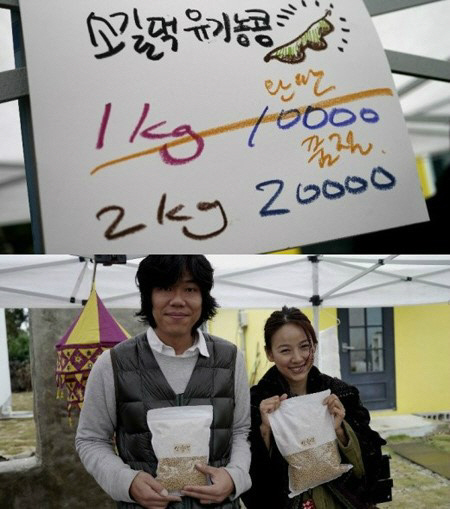 소길댁 유기농콩
완판
1kg 10000
품절.
2kg 20000